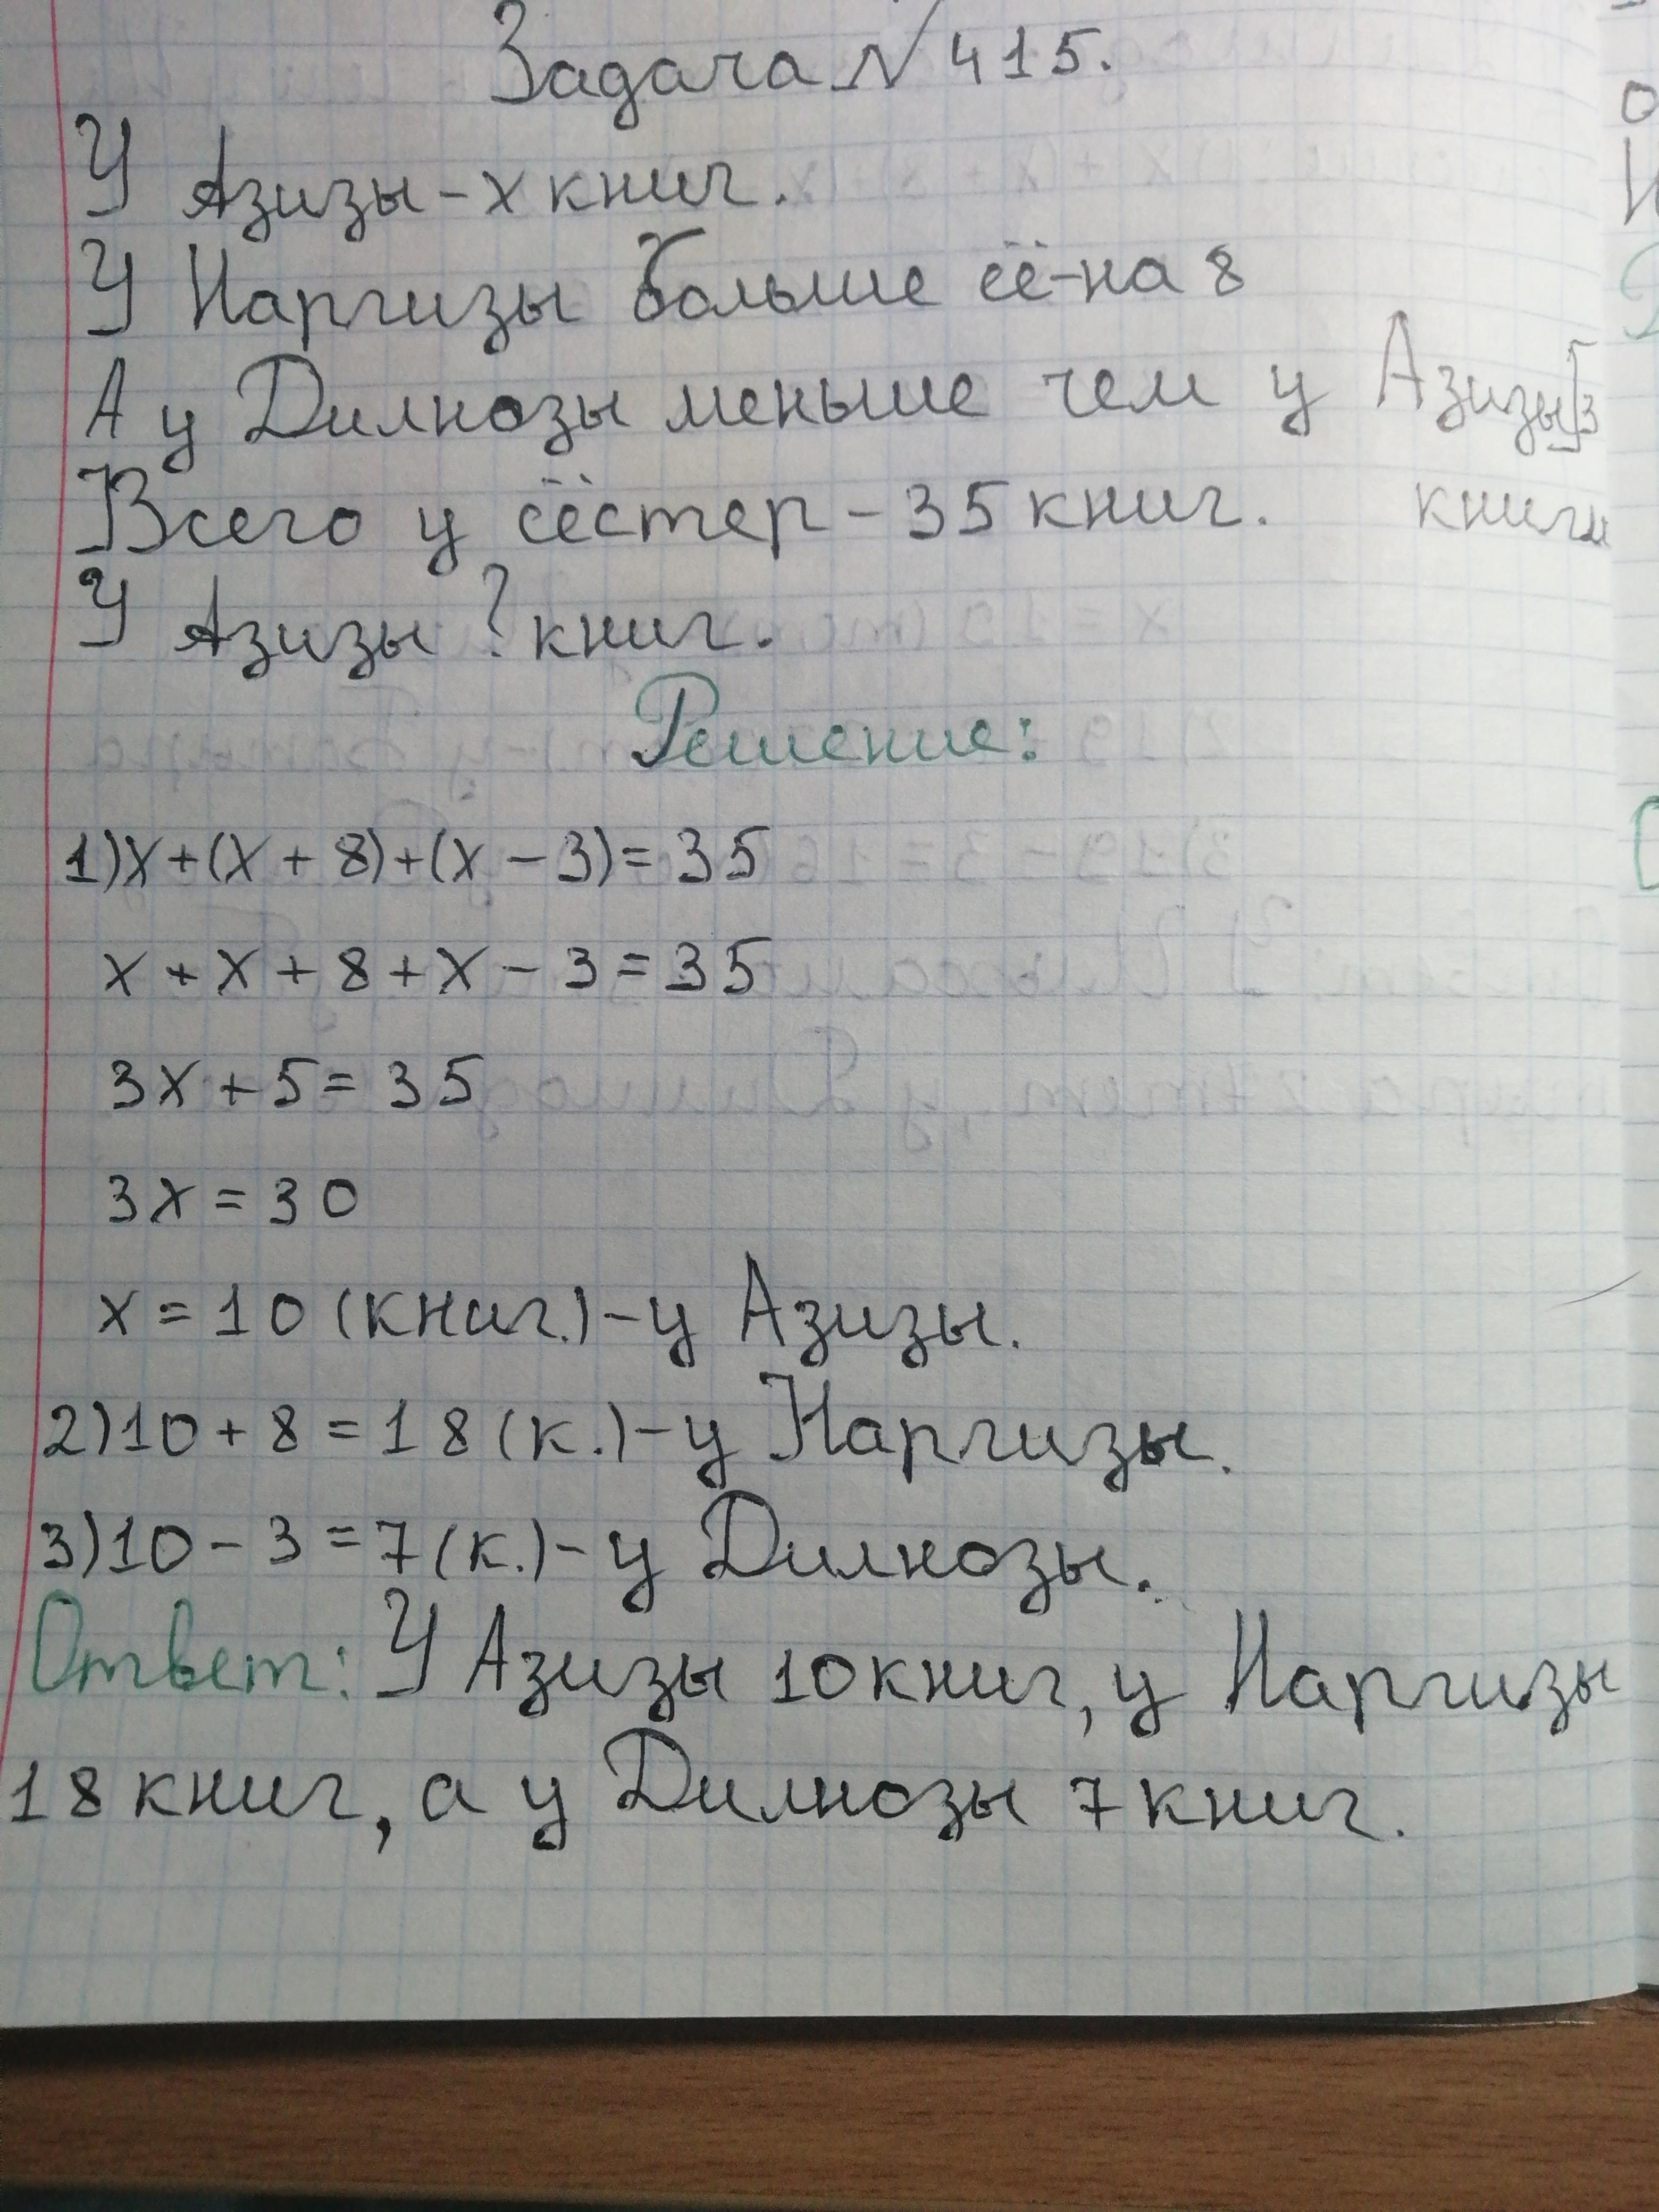 Задача № 415.
У Азизы - х книг.
У Наргизы больше её-на 8
А у Дилнозы меньше чем у Азизы 3
Всего у сёстер - 35 книг. книги
У Азизы ? книг.
Решение:
1) x + (x + 8) + (x - 3) = 35
x + x + 8 + x - 3 = 35
3x + 5 = 35
3x = 30
x = 10 (книг.) - у Азизы.
2) 10 + 8 = 18 (к.) - у Наргизы.
3) 10 - 3 = 7 (к.) - у Дилнозы.
Ответ: У Азизы 10 книг, у Наргизы
18 книг, а у Дилнозы 7 книг.